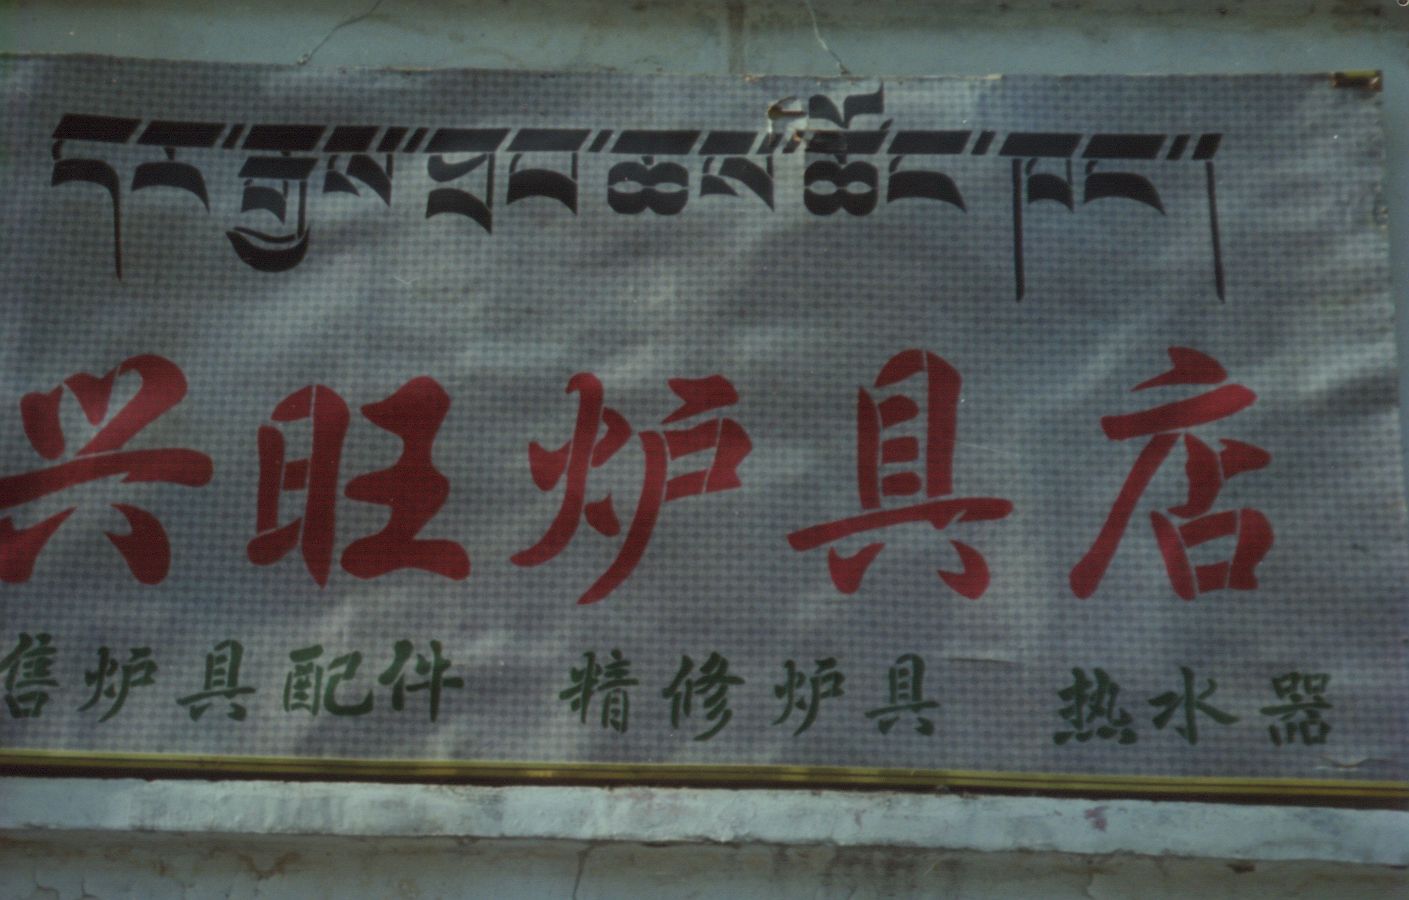 དར་རྒྱས་ཐབ་ཆས་ཚོང་ཁང་།
兴旺炉具店
售炉具配件 精修炉具 热水器